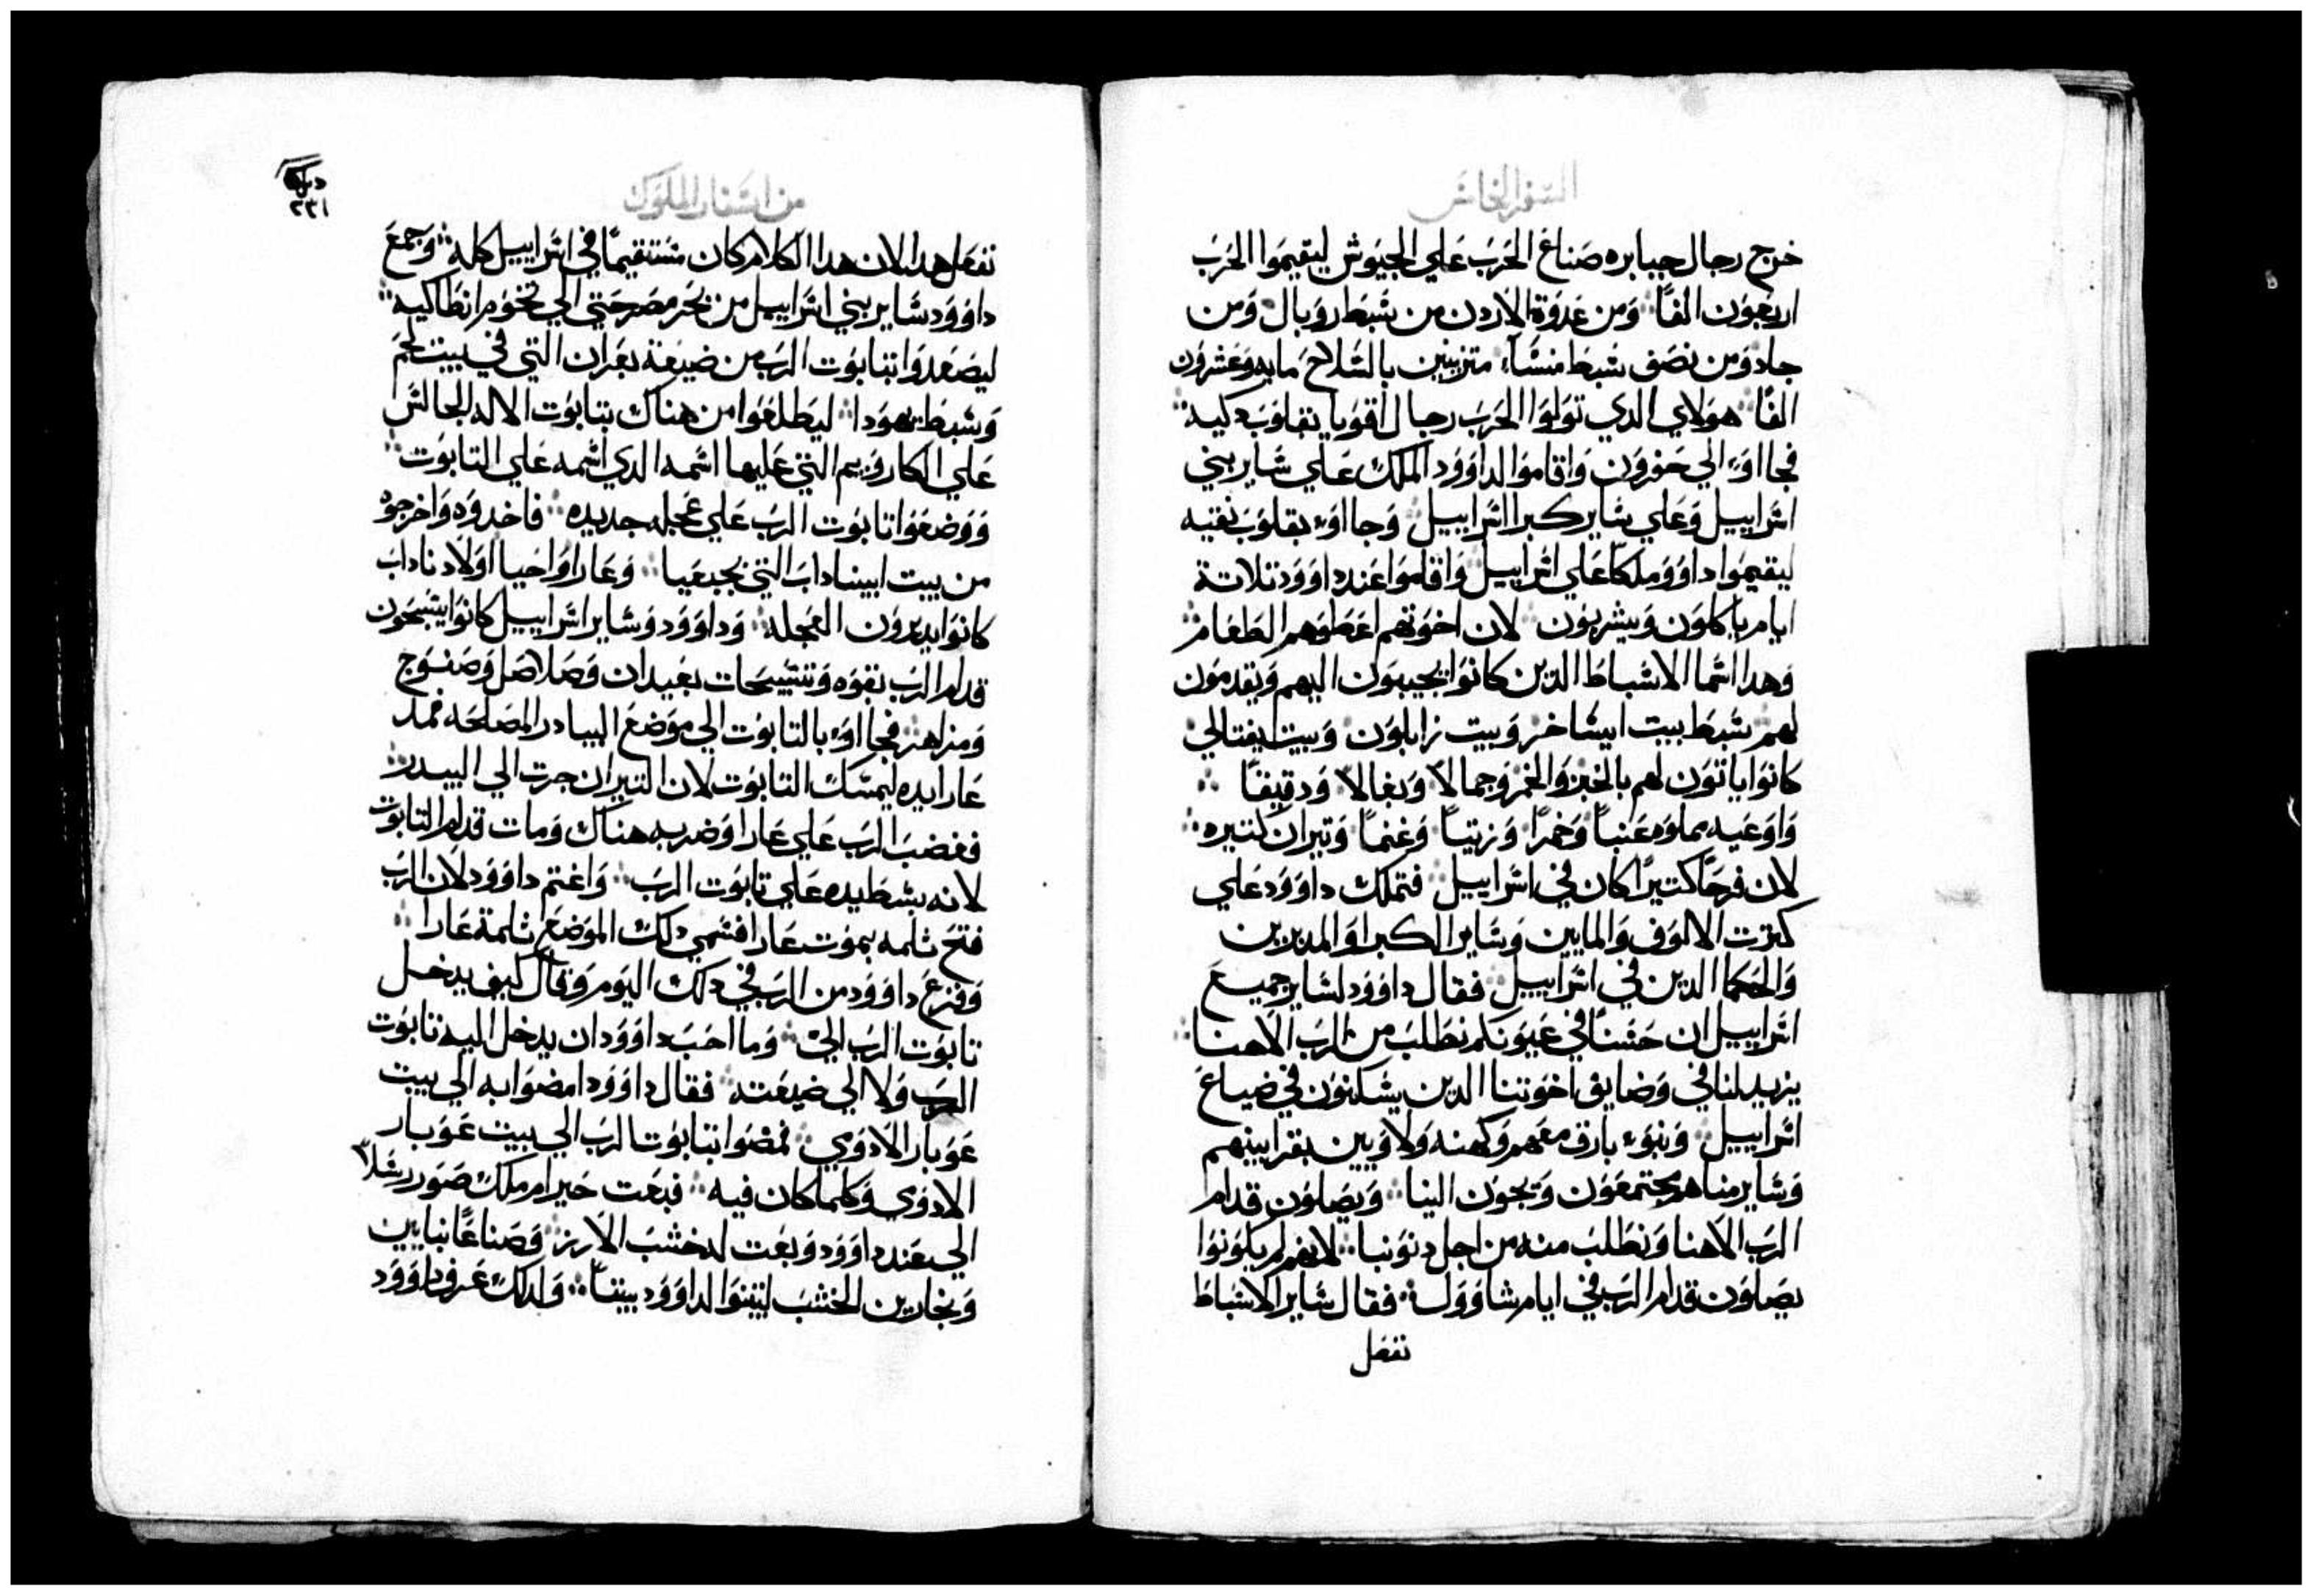 السفر الخامس
خرج رجال جبابره صناع الحرب علي الجيوش ليقيموا الحرب
اربعون الفًا ومن عدوة الاردن من شبط روبال ومن
جاد ومن نصف شبط منشا متزينين بالسلاح مايه وعشرون
الفًا هولاي الدي تولوا الحرب رجال اقويا بقلوب دكيه
فجااو الي حفرون واقاموا لداوود الملك علي ساير بني
اسراييل وعلي ساير كبرا اسراييل وجااو بقلوب نقيه
ليقيموا داوود ملكًا علي اسراييل واقاموا عند داوود تلاتة
ايام ياكلون ويشربون لان اخوتهم اعطوهم الطعام
وهدا اسما الاسباط الدين كانوا يجيبون اليهم ويقدمون
لهم شبط بيت ايساخر وبيت زابلون وبيت يفتالي
كانوا ياتون لهم بالخبز والخمر وجمالًا وبغالًا ودقيقًا
واوعيه مملوه عنبًا وخمرًا وزيتًا وغنمًا وتيران كتيره
لان فرحًا كتيرًا كان في اسراييل فتملك داوود علي
كترت الالوف والمايين وساير الكبرا والمدبرين
والحكما الدين في اسراييل فقال داوود لساير جميع
اسراييل ان حسنًا في عيونكم نطلب من الرب الاهنا
يزيد لنا في وضايق اخوتنا الدين يسكنون في ضياع
اسراييل وبنوء بارق معهم وكهنه ولاويين بقرابينهم
وساير منا هو يجتمعون ويجون الينا ويصلون قدام
الرب الاهنا ونطلب منه من اجل دنوبنا لانهم لم يكونوا
يصلون قدام الرب في ايام شاوول فقال ساير الاسباط
تفعل
من اسفار الملوك
٢٣١
تفعل هدا لان هدا الكلام كان مستقيمًا في اسراييل كله وجمع
داوود ساير بني اسراييل من بحر مصر حتي الي تخوم انطاكيه
ليصعدوا بتابوت الرب من ضيعة يعران التي في بيت لحم
وشبط يهودا ليطلعوا من هناك بتابوت الاله الجالس
علي الكاروبيم التي عليها اسمه الدي اسمه علي التابوت
ووضعوا تابوت الرب علي عجله جديده فاخدوه واخرجوه
من بيت ابيناداب التي بجبعيا وعارا واحيا اولاد ناداب
كانوا يديرون العجله وداوود وساير اسراييل كانوا يسبحون
قدام الرب بقوه وتسبيحات بعيدان وصلاصل وصنوج
ومزاهر فجااو بالتابوت الي موضع البيادر المصلحه فمد
عارا يده ليمسك التابوت لان التيران جرت الي البيدر
فغضب الرب علي عارا وضربه هناك ومات قدام التابوت
لانه بسط يده علي تابوت الرب واغتم داوود لان الرب
فتح ثلمه بموت عارا فسمي دلك الموضع ثلمة عارا
وفزع داوود من الرب في دلك اليوم وقال كيف يدخل
تابوت الرب الي وما احب داوود ان يدخل اليه تابوت
الرب ولا الي ضيعته فقال داوود امضوا به الي بيت
عوبار الادوي فمضوا بتابوت الرب الي بيت عوبار
الادوي وكلما كان فيه فبعت حيرام ملك صور رسلًا
الي عند داوود وبعت له خشب الارز وصناعًا نبايين
ونجارين الخشب ليبنوا لداوود بيتًا ولدلك عرف داوود